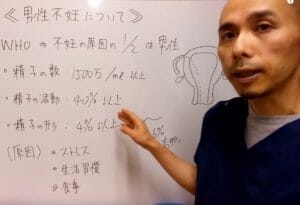 《男性不妊について》
WHO ⇒ 不妊の原因の 1/2 は男性
・精子の数 : 1500万/ml 以上
・精子の活動 : 40% 以上
・精子の形 : 4% 以上
(原因) ・ストレス
・生活習慣
・食事